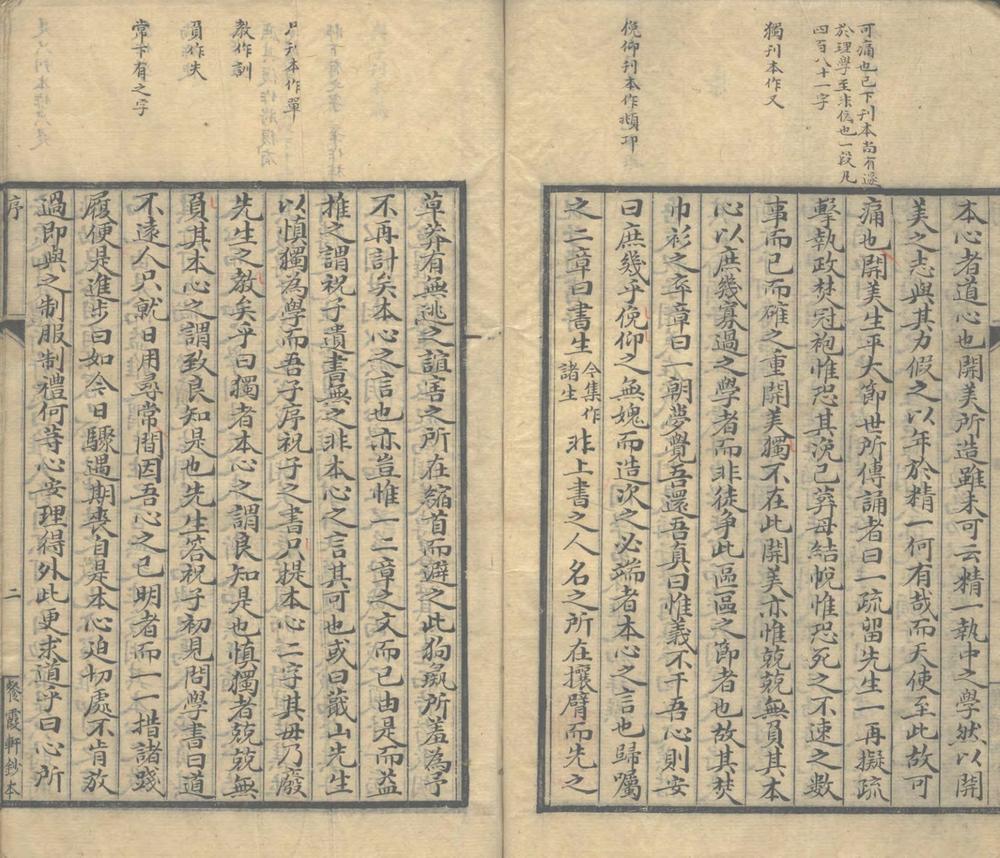 可痛也已下刊本尚有遂
於理學至未信也一段凡
四百八十一字
獨刊本作又
俛仰刊本作頫卬
本心者道心也開美所造雖未可云精一執中之學然以開
美之志與其力假之以年於精一何有哉而天使至此故可
痛也開美生平大節世所傳誦者曰一疏留先生一再擬疏
擊執政焚冠袍惟恐其浼己葬母結帨惟恐死之不速之數
事而已而確之重開美獨不在此開美亦惟兢兢無負其本
心以庶幾寡過之學者而非徒爭此區區之節者也故其焚
巾衫之卒章曰一朝夢覺吾還吾真曰惟義不干吾心則安
曰庶幾乎俛仰之無媿而造次之必端者本心之言也歸囑
之二章曰書生今集作諸生非上書之人名之所在攘臂而先之
只刊本作單
教作訓
負作失
常下有之字
草莽有無逃之誼害之所在縮首而避之此狗彘所羞為予
不再計矣本心之言也亦豈惟一二章之文而已由是而益
推之謂祝子遺書無之非本心之言其可也或曰蕺山先生
以慎獨為學而吾子序祝子之書只提本心二字其毋乃廢
先生之教矣乎曰獨者本心之謂良知是也慎獨者兢兢無
負其本心之謂致良知是也先生答祝子初見問學書曰道
不遠人只就日用尋常間因吾心之已明者而一一措諸踐
履便是進步曰如今日驟遇期喪自是本心迫切處不肯放
過即與之制服制禮何等心安理得外此更求道乎曰心所
序
二
餐霞軒鈔本